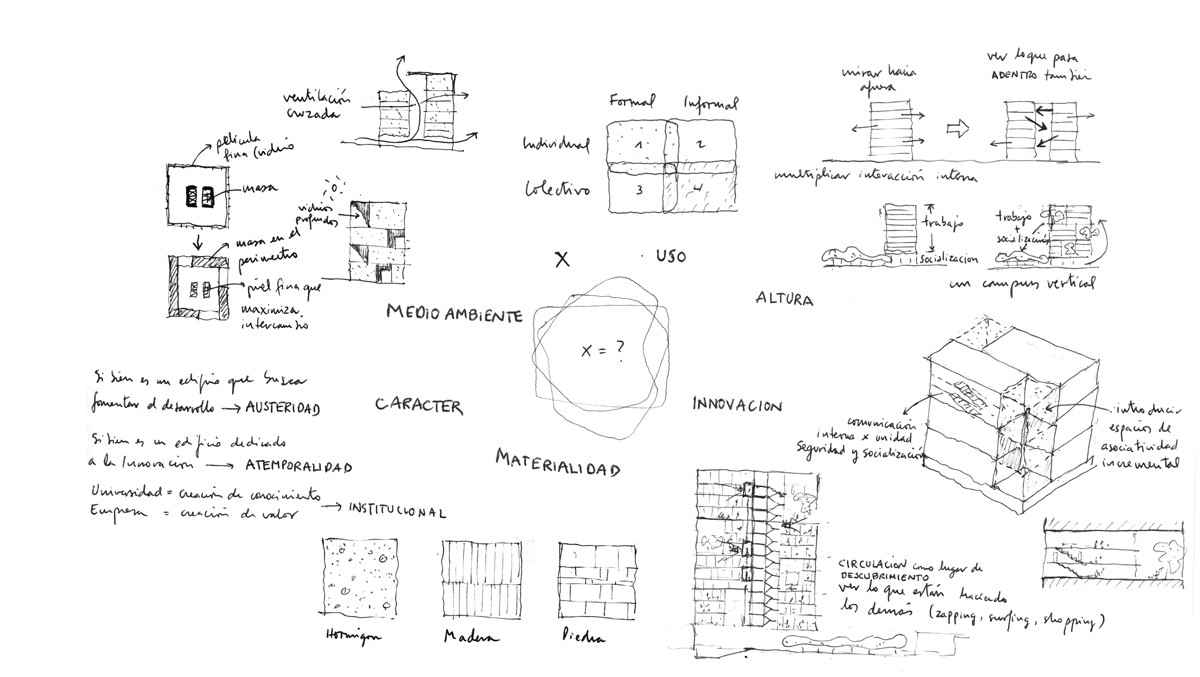 ventilación
cruzada
película
fina (vidrio
masa
vidrios
profundos
masa en el
perímetro
piel fina que
maximiza
intercambio
MEDIO AMBIENTE
Formal Informal
Individual 1 2
Colectivo 3 4
X USO
mirar hacia
afuera
ver lo que pasa
ADENTRO también
multiplicar interacción interna
trabajo
socialización
trabajo
+
socialización
un campus vertical
ALTURA
X = ?
Si bien es un edificio que busca
fomentar el desarrollo → AUSTERIDAD
Si bien es un edificio dedicado
a la Innovación → ATEMPORALIDAD
Universidad = creación de conocimiento
Empresa = creación de valor → INSTITUCIONAL
CARACTER
INNOVACION
MATERIALIDAD
Hormigon
Madera
Piedra
comunicación
interna x unidad
seguridad y socialización
introducir
espacios de
asociatividad
incremental
CIRCULACION como lugar de
DESCUBRIMIENTO
ver lo que están haciendo
los demás (zapping, surfing, shopping)